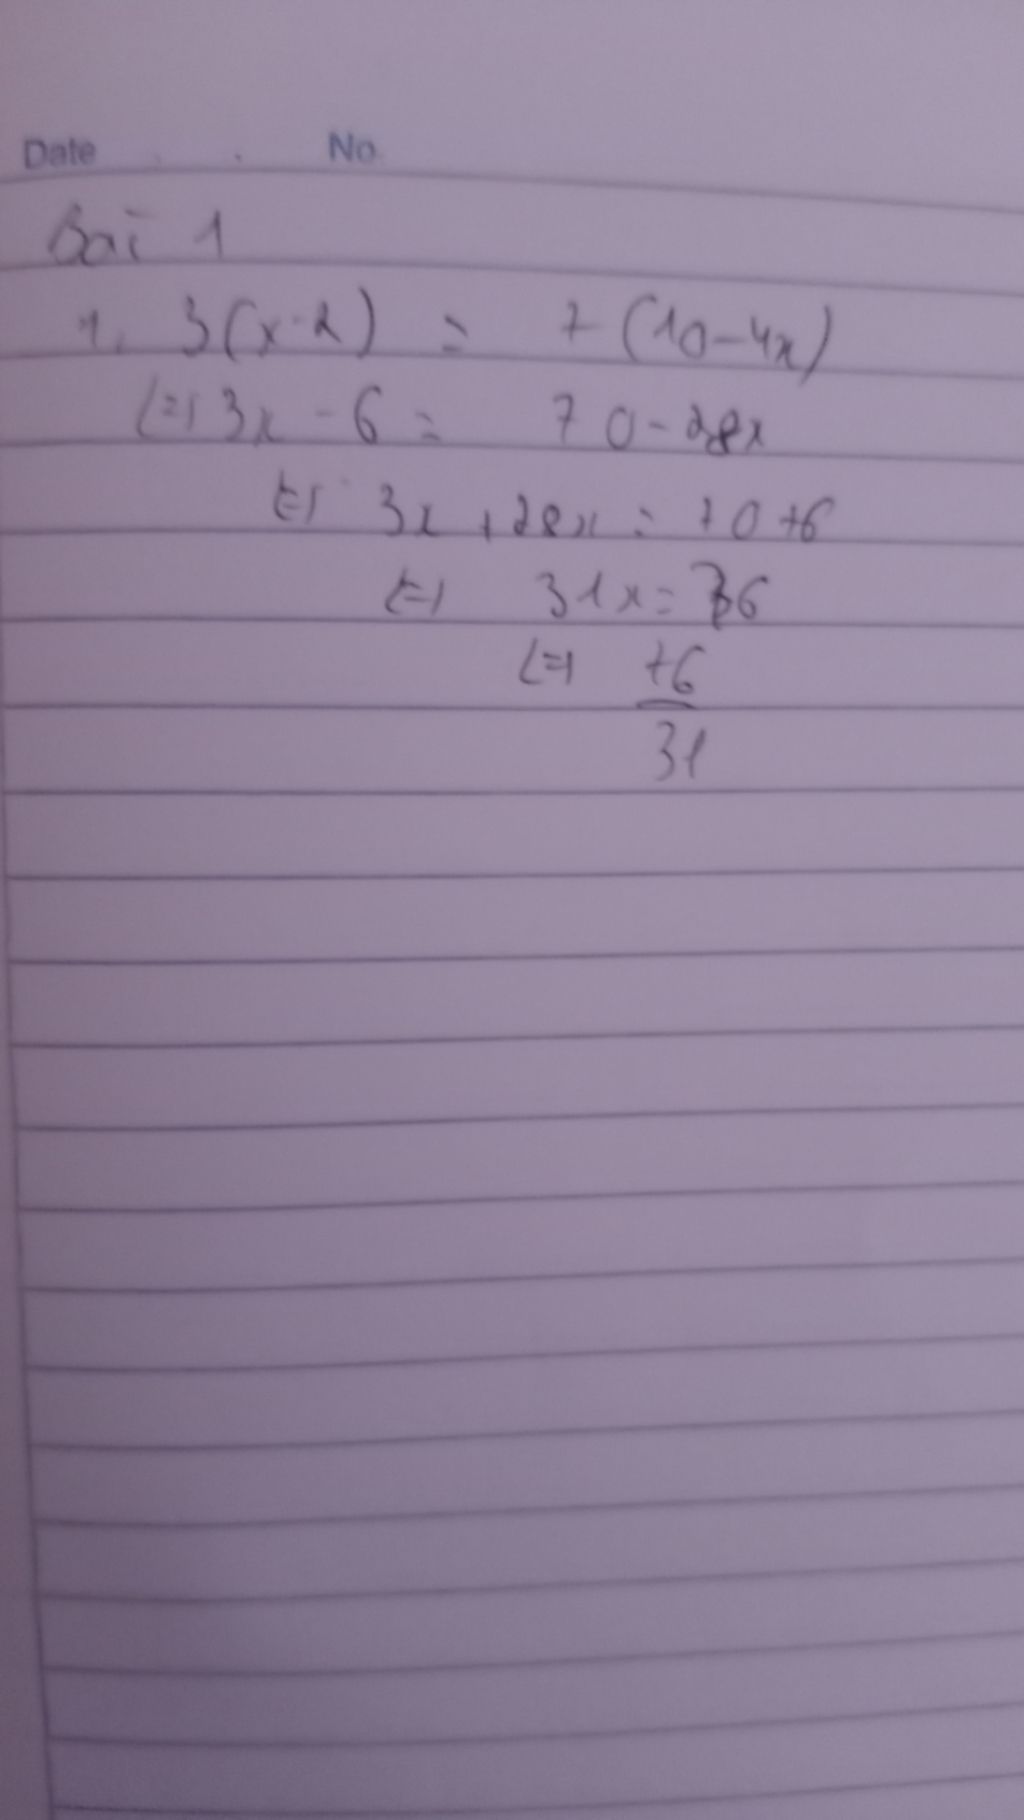 Date No
Bài 1
1. 3(x-2) = 7(10-4x)
(=) 3x - 6 = 70-28x
(=) 3x + 28x = 70+6
(=) 31x = 76
(=) 76
31